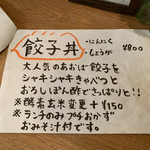 餃子丼
・にんにく
・しょうが
¥800
大人気のあおば餃子を
シャキシャキきゃべつと
おろしぽん酢でさっぱりと!!
※酵素玄米変更+¥150
※ランチのみプチおかず
おみそ汁付です。